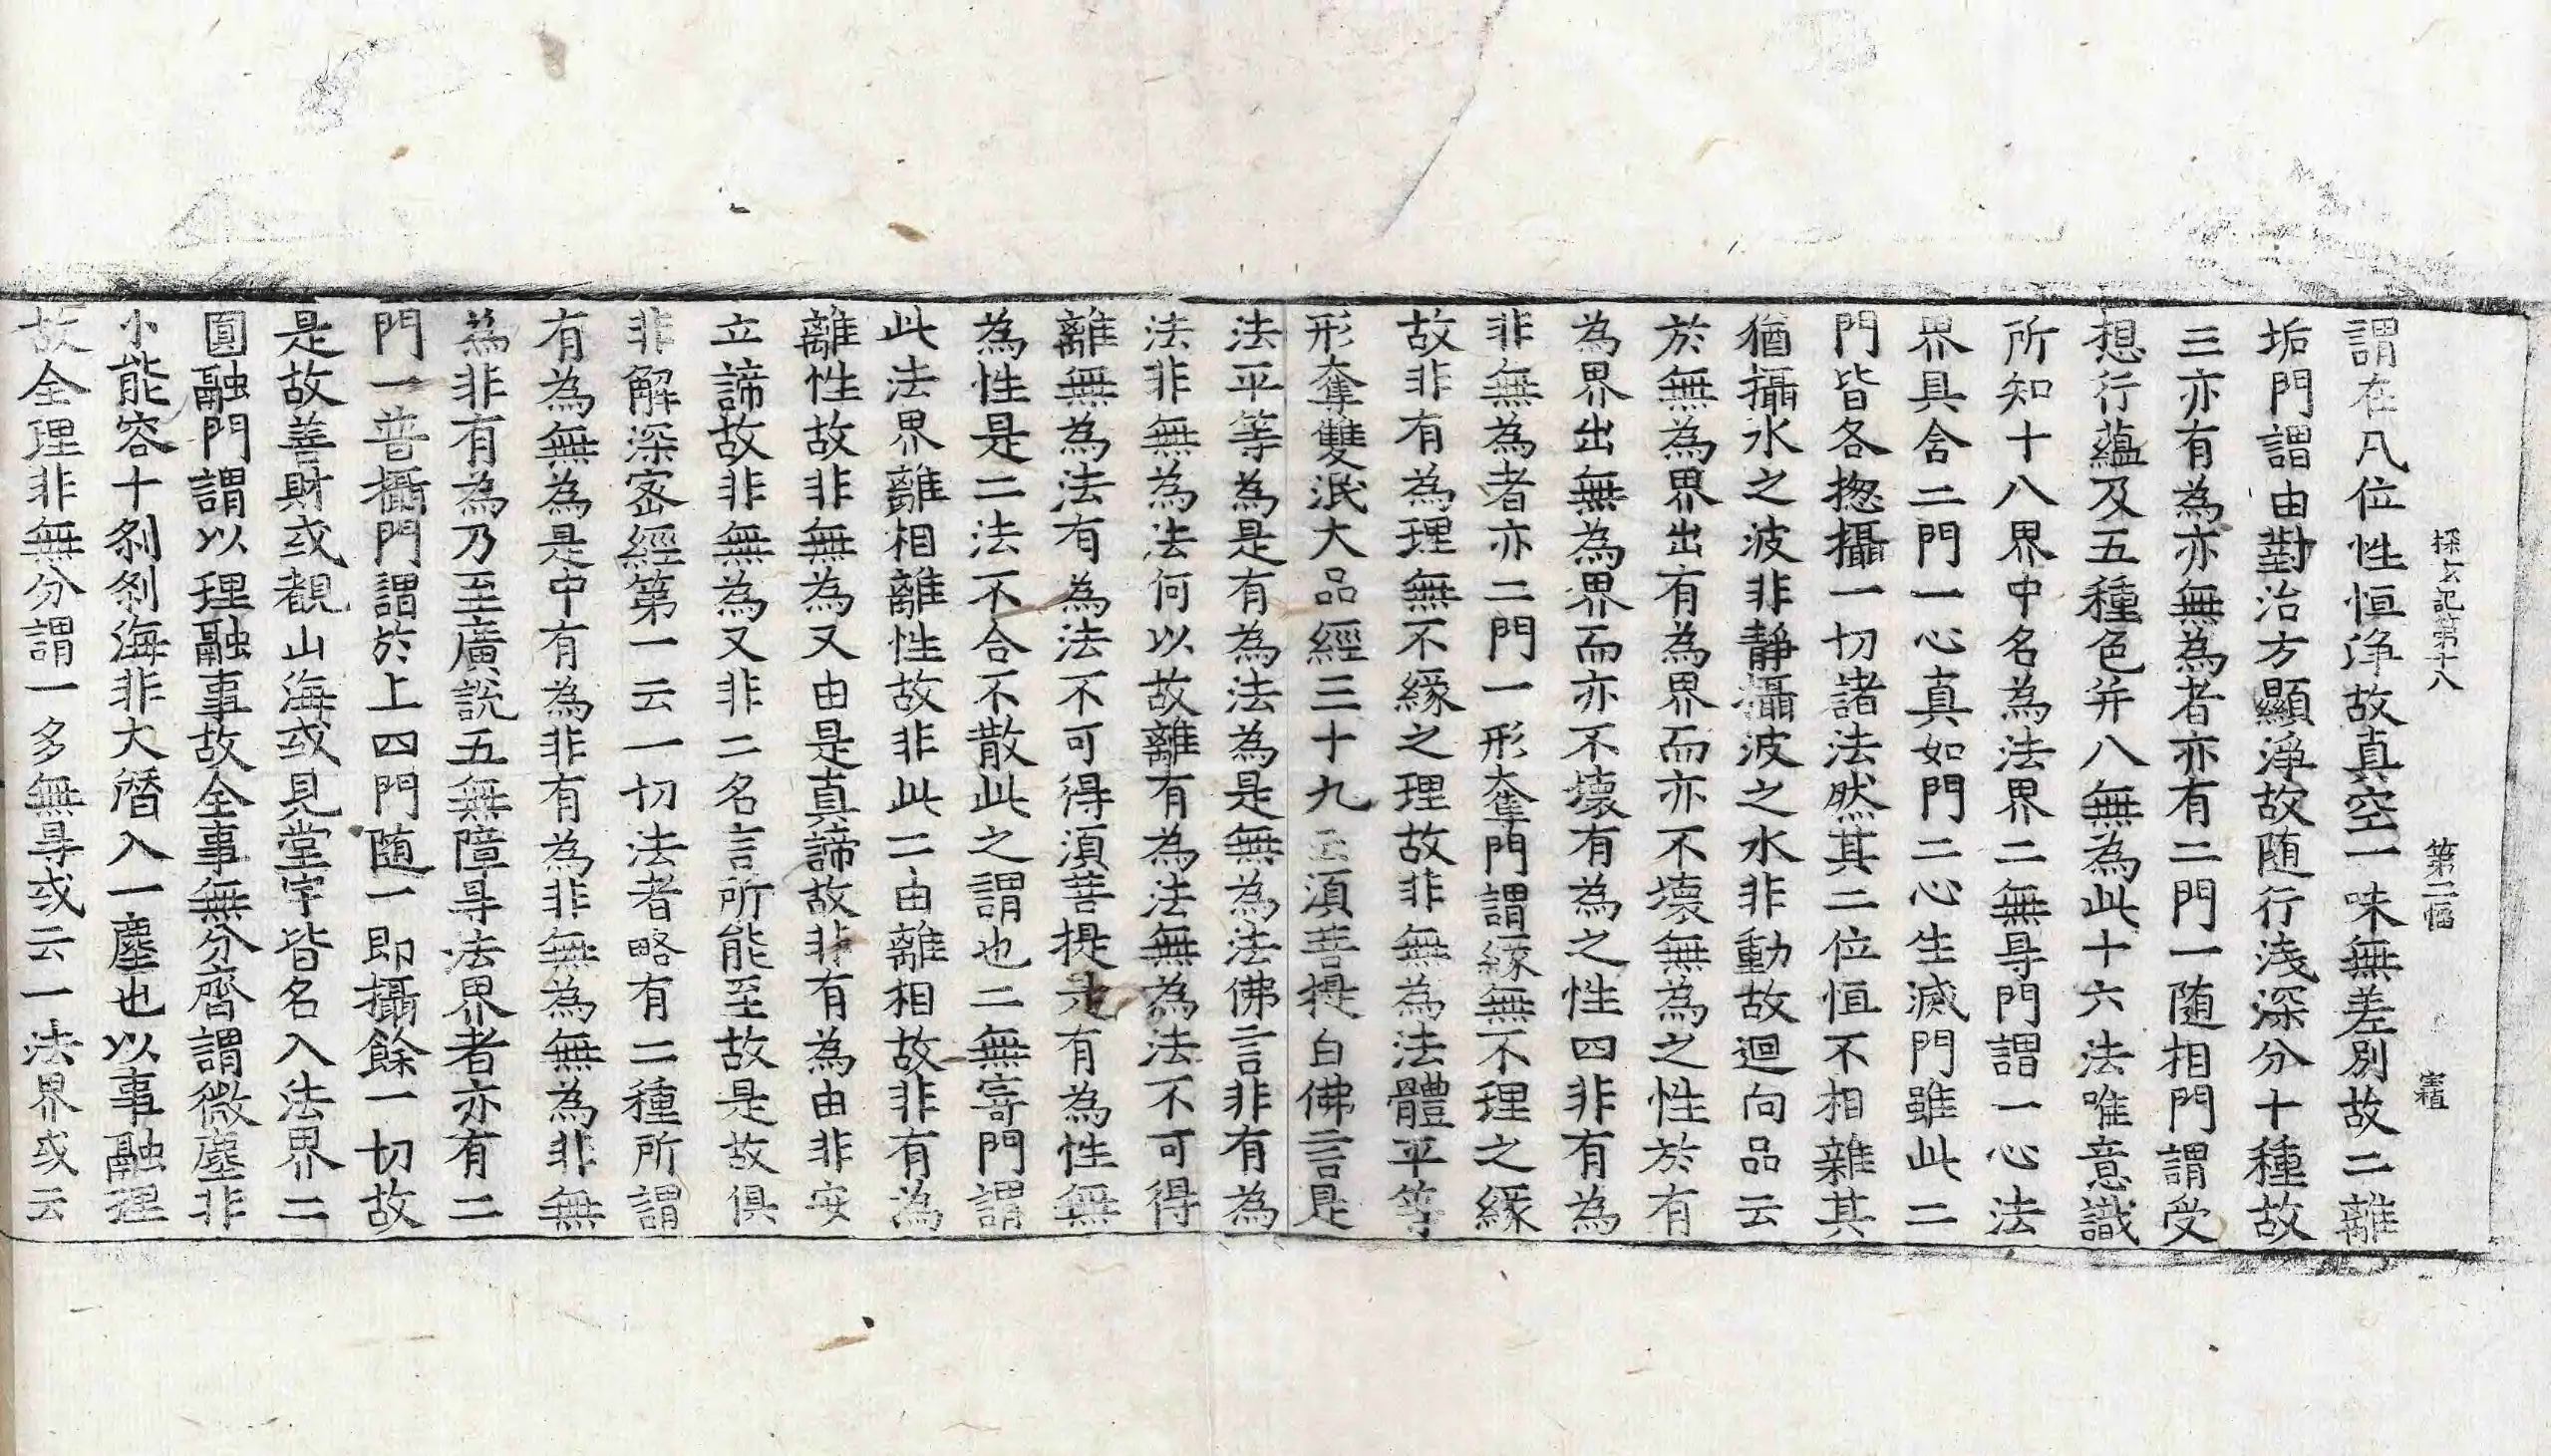 探玄記第十八　第二幅　宝積
謂在凡位性恒淨故真空一味無差別故二離
垢門謂由對治方顯淨故随行淺深分十種故
三亦有為亦無為者亦有二門一随相門謂受
想行蘊及五種色并八無為此十六法唯意識
所知十八界中名為法界二無㝵門謂一心法
界具含二門一心真如門二心生滅門雖此二
門皆各揔攝一切諸法然其二位恒不相雜其
猶攝水之波非靜攝波之水非動故迴向品云
於無為界出有為界而亦不壞無為之性於有
為界出無為界而亦不壞有為之性四非有為
非無為者亦二門一形奪門謂緣無不理之緣
故非有為理無不緣之理故非無為法體平等
形奪雙泯大品經三十九云湏菩提白佛言是
法平等為是有為法為是無為法佛言非有為
法非無為法何以故離有為法無為法不可得
離無為法有為法不可得湏菩提是有為性無
為性是二法不合不散此之謂也二無寄門謂
此法界離相離性故非此二由離相故非有為
離性故非無為又由是真諦故非有為由非安
立諦故非無為又非二名言所能至故是故俱
非解深宻經第一云一切法者略有二種所謂
有為無為是中有為非有為非無為無為非無
為非有為乃至廣說五無障㝵法界者亦有二
門一普攝門謂於上四門随一即攝餘一切故
是故善財或覩山海或見堂宇皆名入法界二
圓融門謂以理融事故全事無分齊謂微塵非
小能容十剎剎海非大潛入一塵也以事融理
故全理非無分謂一多無㝵或云一法界或云